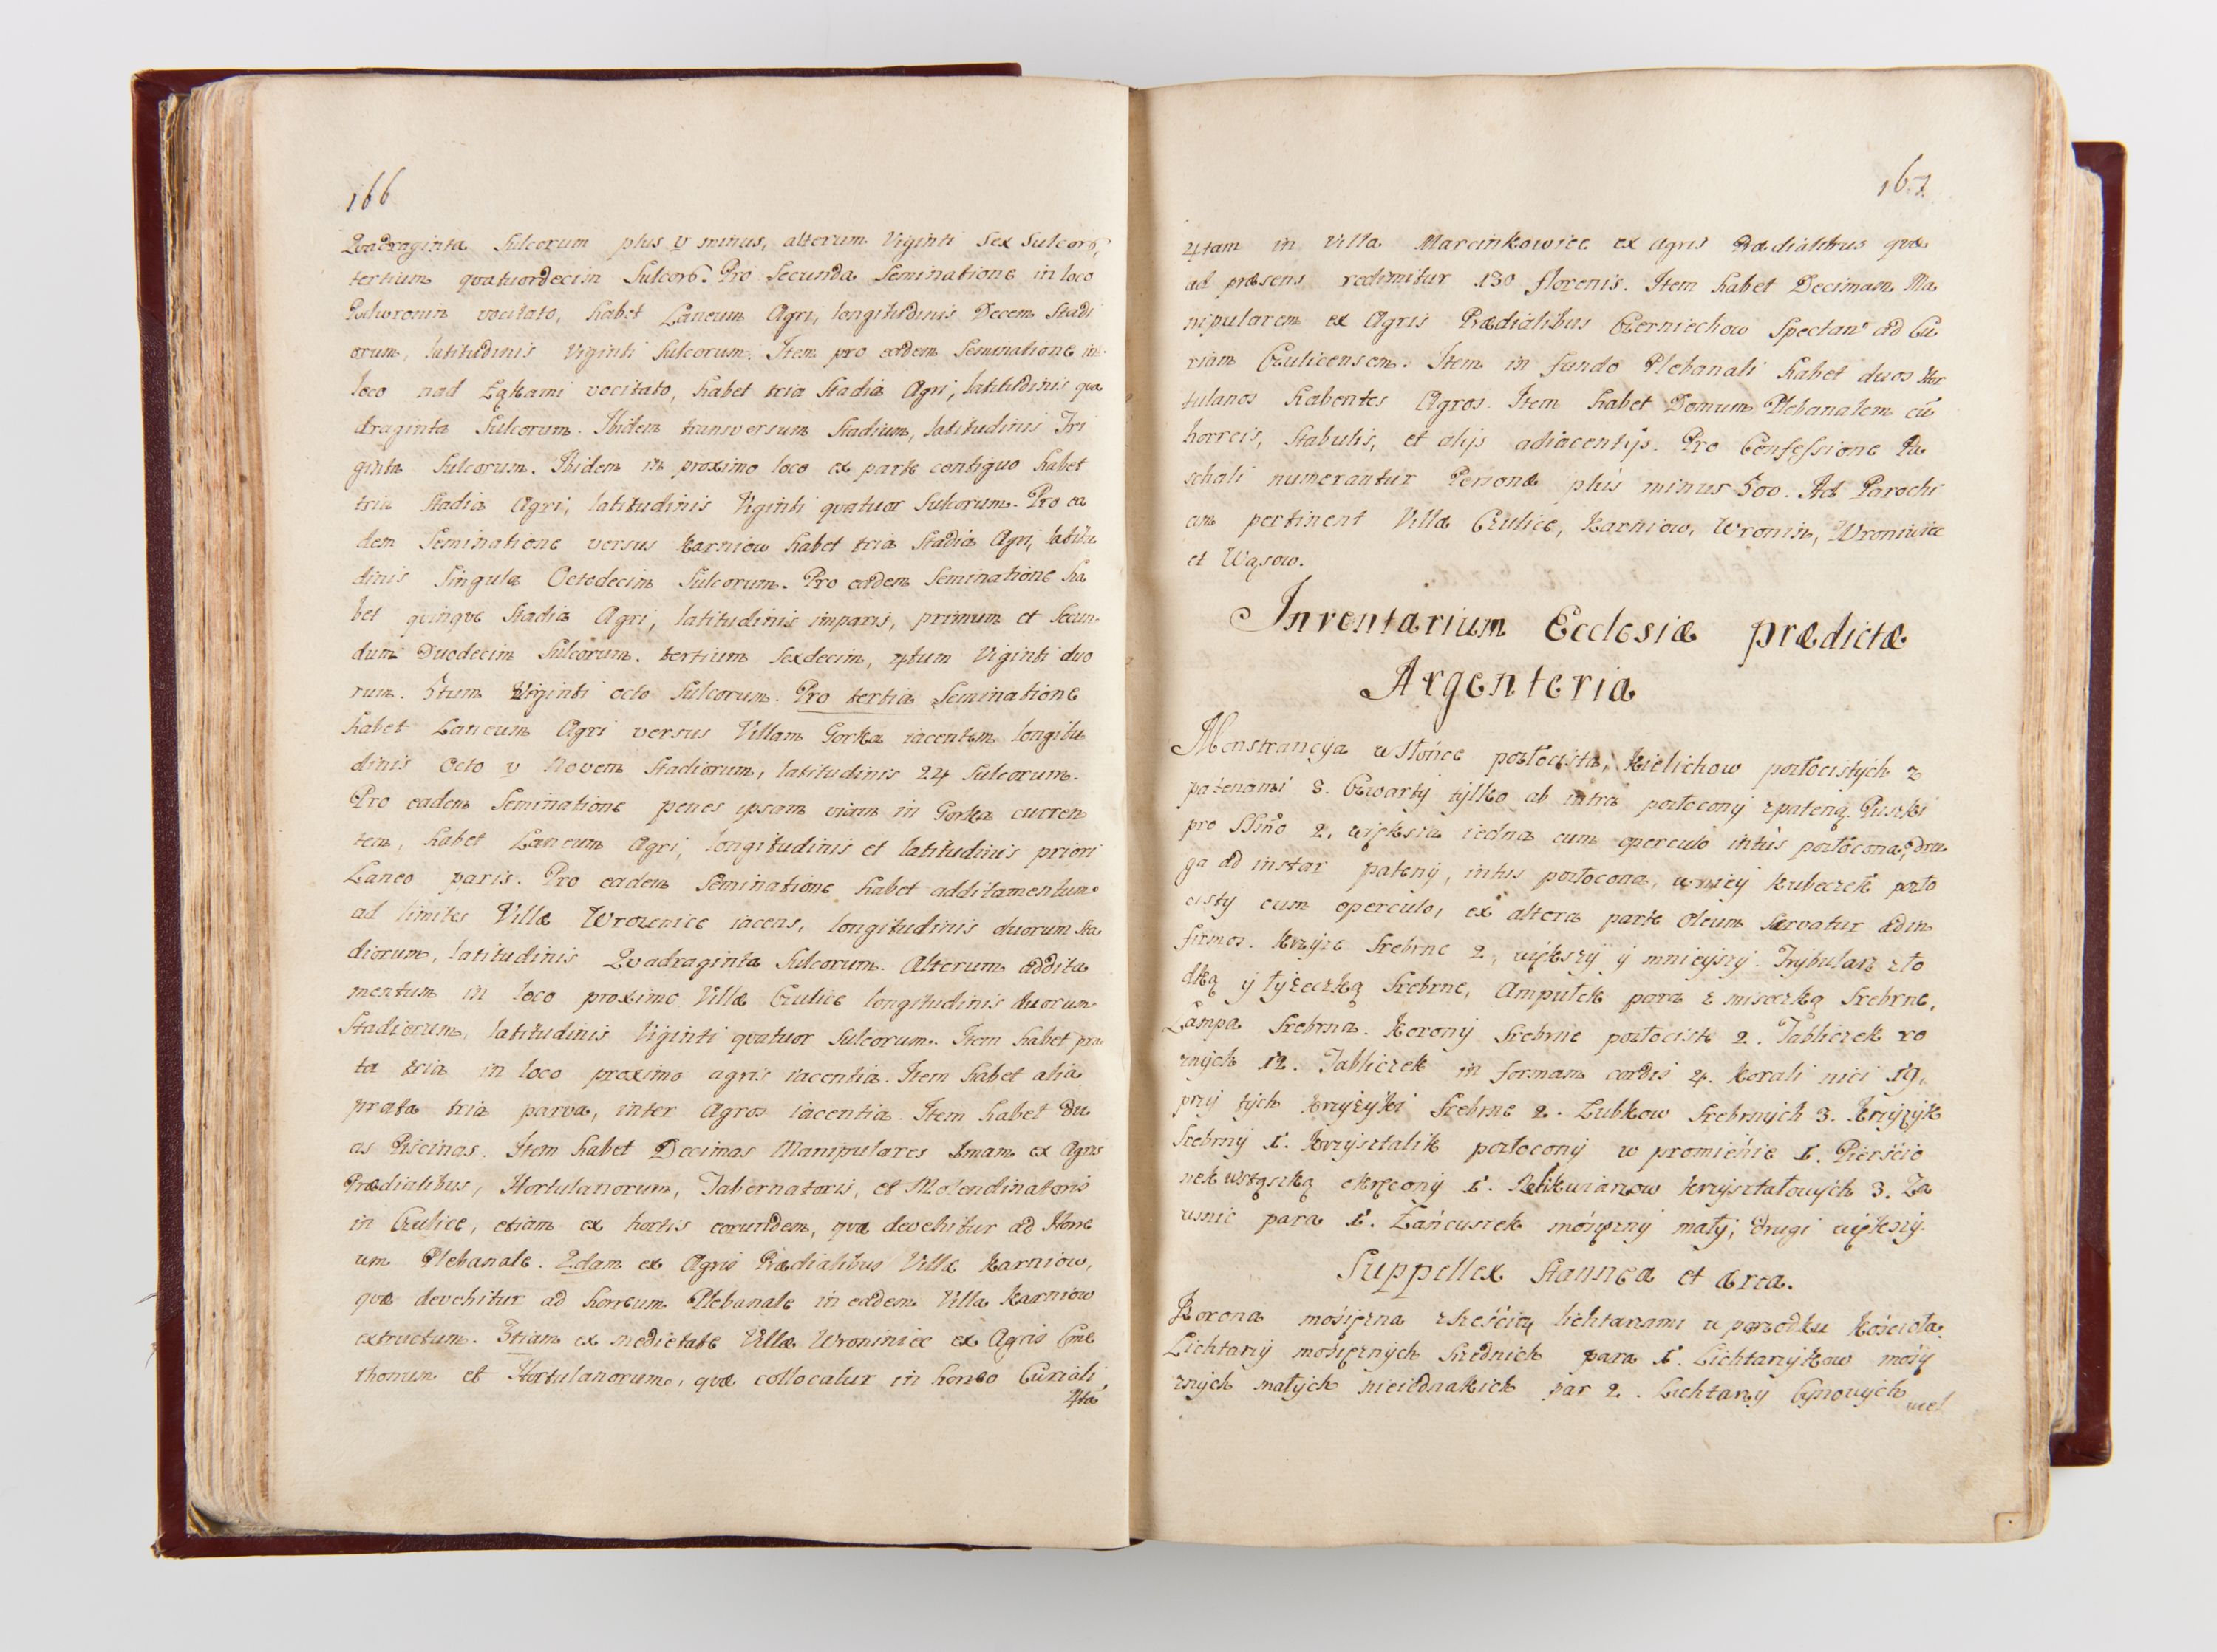 166
Qvadraginta Sulcorum plus v minus, alterum Viginti Sex Sulcorū,
tertium qvatuordecim Sulcorū. Pro Secunda Seminatione in loco
vocitato, habet Laneum Agri, longitudinis Decem Stadi
orum, latitudinis Viginti Sulcorum. Item pro eadem Seminatione in
loco nad Łąkami vocitato, habet tria Stadia Agri, latitudinis qua
draginta Sulcorum. Ibidem transversum Stadium, latitudinis Tri
ginta Sulcorum. Ibidem in proximo loco ex parte contiguo habet
tria Stadia Agri, latitudinis Viginti qvatuor Sulcorum. Pro ea
dem Seminatione versus Karniow habet tria Stadia Agri, latitu
dinis Singula Octodecim Sulcorum. Pro eadem Seminatione ha
bet qvinqve Stadia Agri, latitudinis imparis, primum et Secun
dum Duodecim Sulcorum. tertium Sexdecim, 4tum Viginti duo
rum. 5tum Viginti octo Sulcorum. Pro tertia Seminatione
habet Laneum Agri versus Villam Gorka iacentem longitu
dinis Octo v Novem Stadiorum, latitudinis 24 Sulcorum.
Pro eadem Seminatione penes ipsam viam in Gorka curren
tem, habet Laneum Agri, longitudinis et latitudinis priori
Laneo paris. Pro eadem Seminatione habet additamentum
ad limites Villæ Wrozenice iacens, longitudinis duorum Sta
diorum, latitudinis Qvadraginta Sulcorum. Alterum addita
mentum in loco proximo Villæ Czulice longitudinis duorum
Stadiorum, latitudinis Viginti qvatuor Sulcorum. Item habet pra
ta tria in loco proximo agris iacentia. Item habet alia
prata tria parva, inter Agros iacentia. Item habet Du
as Piscinas. Item habet Decimas Manipulares 1mam ex Agris
Prædialibus, Hortulanorum, Tabernatoris, et Molendinatoris
in Czulice, etiam ex hortis eorundem, qvæ devehitur ad Horre
um Plebanale. 2dam ex Agris Prædialibus Villæ Karniow,
qvæ devehitur ad horreum Plebanale in eadem Villa Karniow
extructum. 3tiam ex medietate Villæ Wroniniec ex Agris Cme
thonum et Hortulanorum, qvæ collocatur in horreo Curiali,
4ta
167
4tam in Villa Marcinkowice ex agris Prædialibus qvæ
ad præsens redimitur 130 florenis. Item habet Decimam Ma
nipularem ex Agris Prædialibus Czerniechow Spectan' ad Cu
riam Czulicensem. Item in fundo Plebanali habet duos Hor
tulanos habentes Agros. Item habet Domum Plebanalem cū
horreis, Stabulis, et alijs adiacentijs. Pro Confessione Pa
schali numerantur Personæ plus minus 500. Ad Parochi
am pertinent Villæ Czulice, Karniow, Wronin, Wroniniec
et Wąsow.
Inventarium Ecclesiæ prædictæ
Argenteria
Monstrancÿa w Słońce pozłocista, Kielichow pozłocistÿch z
patenami 3. Czwartÿ tÿlko ab intra pozłoconÿ z pateną. Puszki
pro SSmo 2, większa iedna cum operculo intus pozłocona, Dru
ga ad instar patenÿ, intus pozłocona, w nieÿ kubeczek pozło
cistÿ cum operculo, ex altera parte Oleum Servatur ad in
firmos. Krzÿże Srebrne 2, większÿ ÿ mnieÿszÿ. Trÿbularz z ło
dką ÿ łÿżeczką Srebrne, Ampułek para z miseczką Srebrne,
Lampa Srebrna. Koronÿ Srebrne pozłociste 2. Tabliczek ro
znÿch 12. Tabliczek in formam cordis 4. Korali nici 19,
przÿ tÿch krzÿżÿki Srebrne 2. Lubkow Srebrnÿch 3. Krzÿżÿk
Srebrnÿ 1. Krzÿsztalik pozłoconÿ w promienie 1. Pierścio
nek wstąszką okręconÿ 1. Relikwiarzow krzÿształowÿch 3. Za
usnic para 1. Łańcuszek mosiężnÿ małÿ, Drugi większÿ.
Suppellex Stannea et ærea.
Korona mosiężna z sześcią lichtarzami w porzodku Kościoła.
Lichtarzÿ mosiężnÿch Srednich para 1. Lichtarzÿkow mosię
żnÿch małÿch nieiednakich par 2. Lichtarzÿ Cynowÿch
wiel